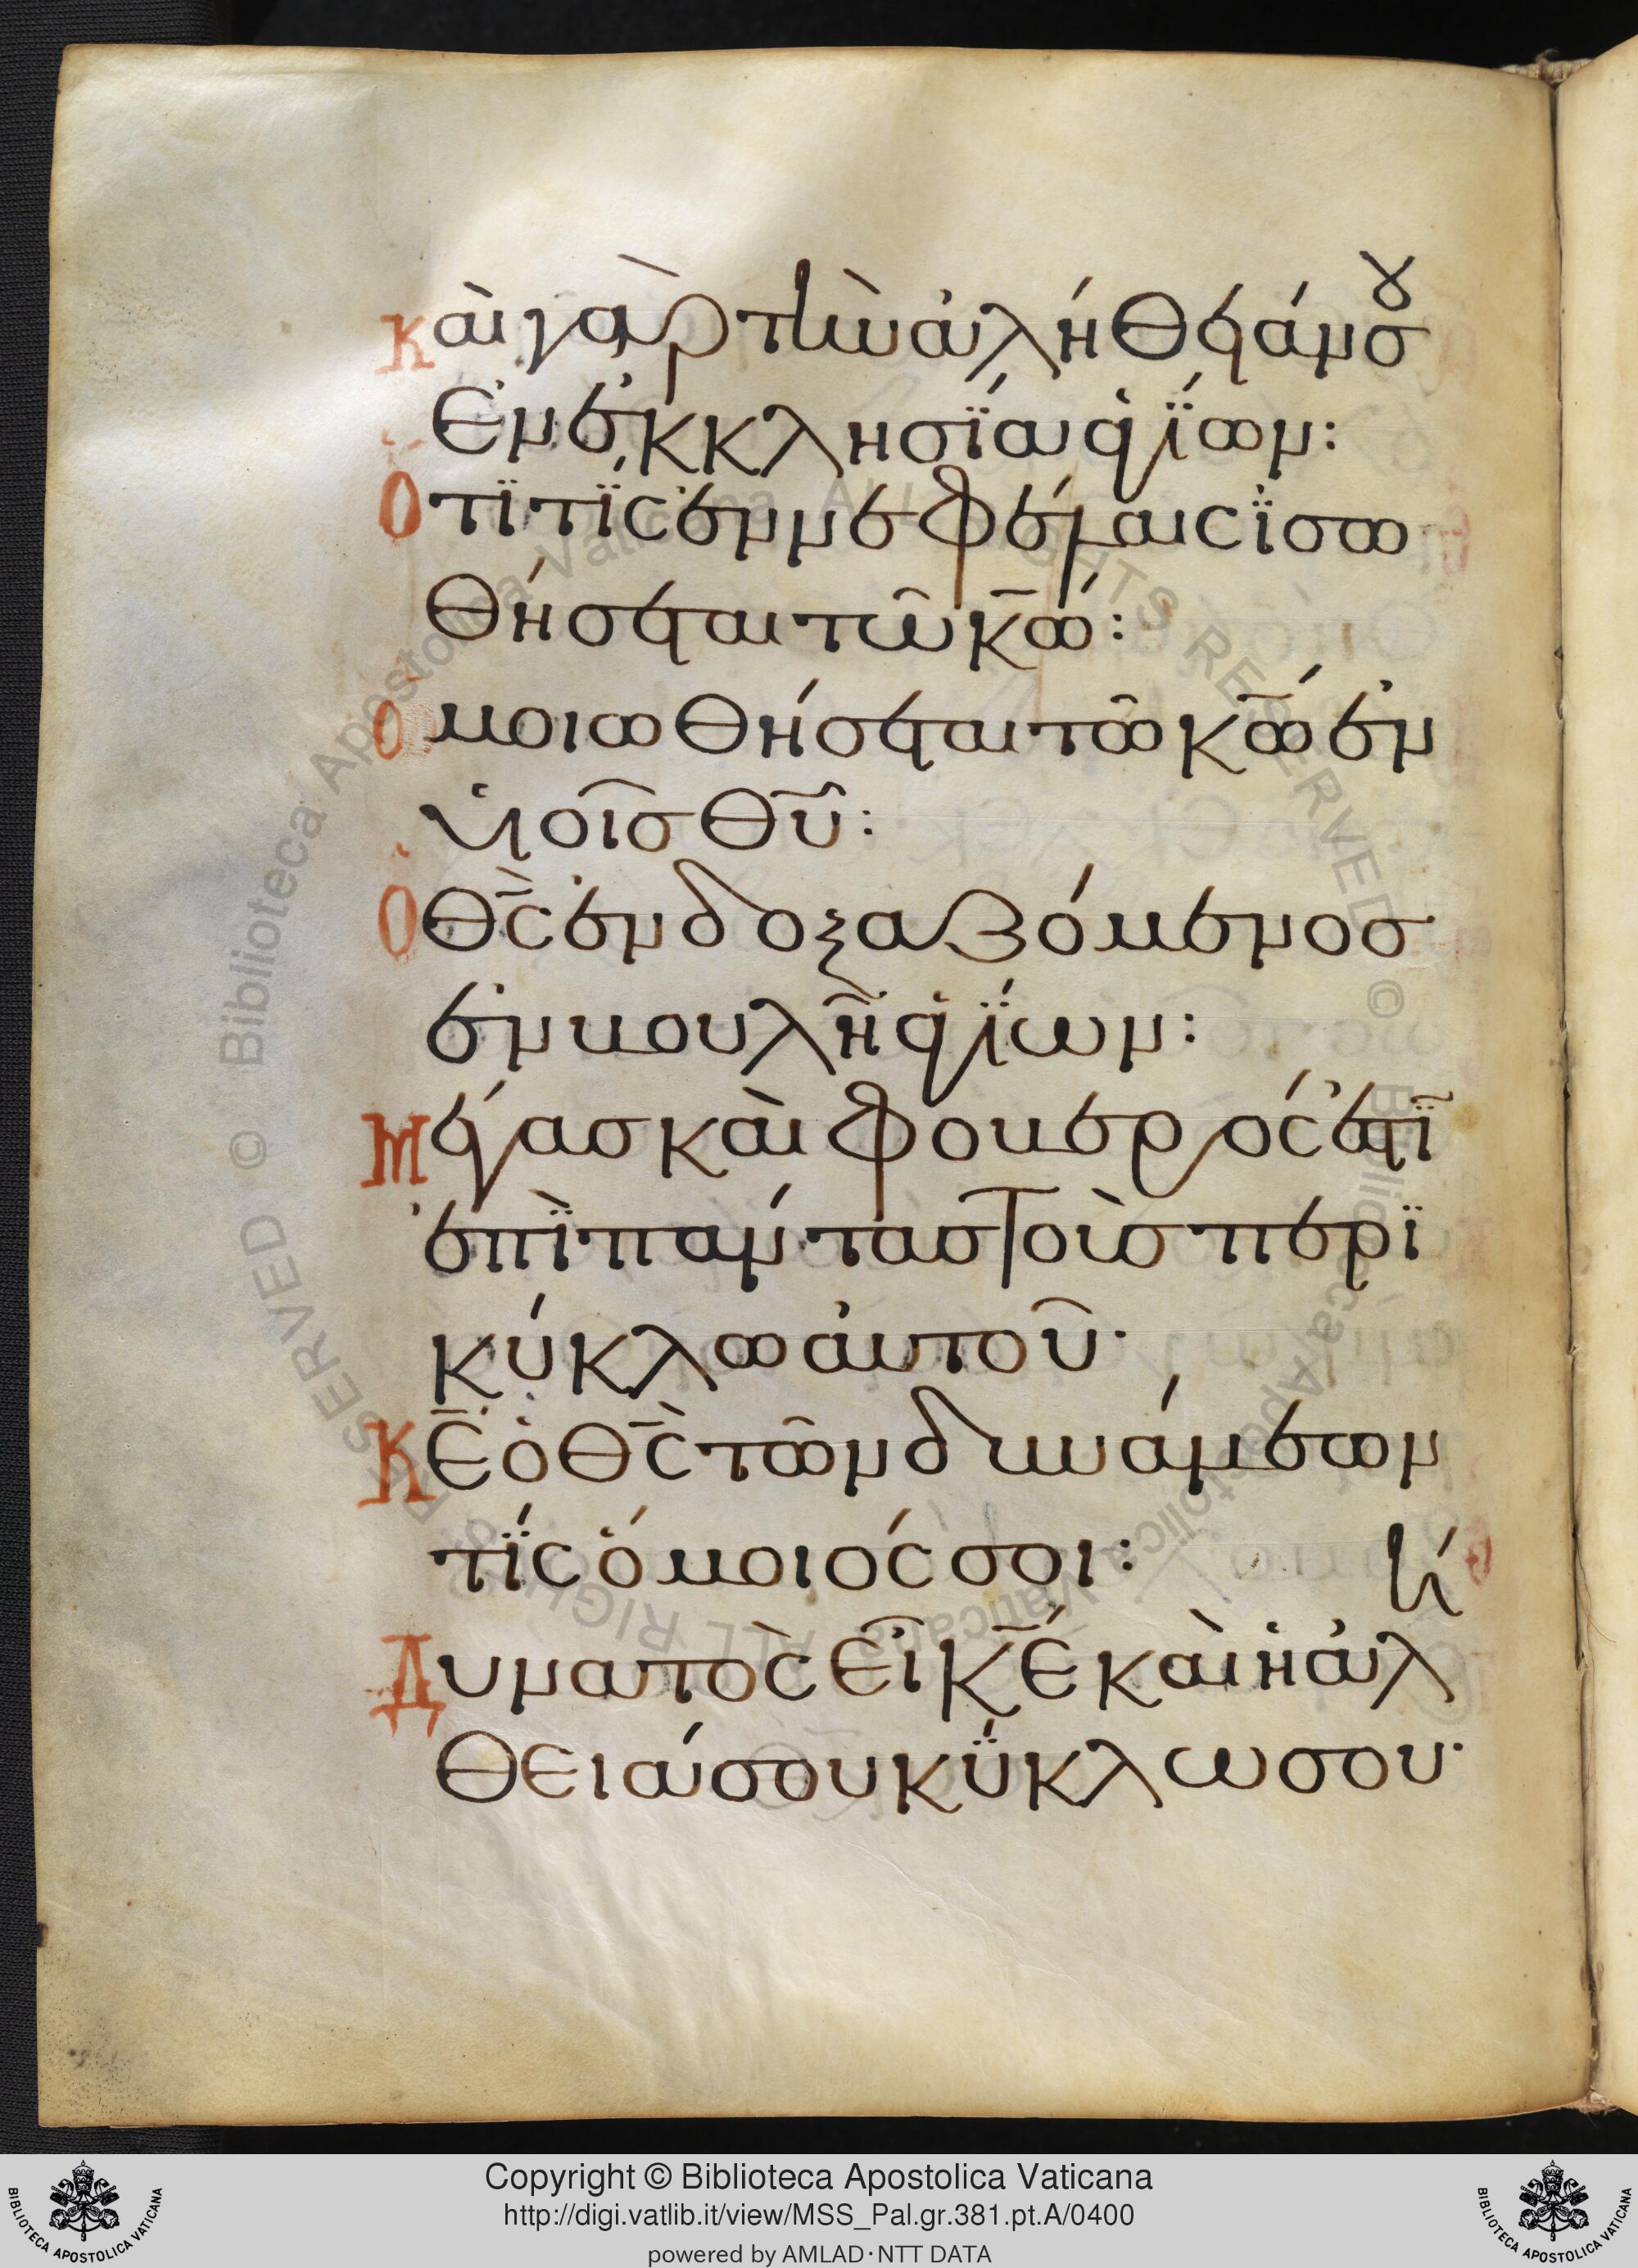 Καὶ γὰρ τὴν ἀλήθειάν σου
ἐν ἐκκλησΐα ἁγΐων:
Ὅτϊ τΐς ἐν νεφέλαις ϊσω
θήσεται τῶ κ̅ω̅:
Ὁμοιωθήσεται τῶ κ̅ω̅ ἐν
υἱοῖσ θ̅υ̅:
Ὁ θ̅ς̅ ἐνδοξαζόμενοσ
ἐν βουλῆ ἁγΐων:
Μέγασ καὶ φοβερός ἐστϊ
ἐπῒ πάντασ τοὺσ περϊ
κύκλω ἀυτοῦ·
Κ̅ε̅ ὁ θ̅ς̅ τῶν δυνάμεων
τΐς ὅμοιός σοι:
Δυνατὸς εἶ κ̅ε̅ καὶ ἡ ἀλή
θειά σου κύκλω σου·
Copyright © Biblioteca Apostolica Vaticana
http://digi.vatlib.it/view/MSS_Pal.gr.381.pt.A/0400
powered by AMLAD·NTT DATA
BIBLIOTECA APOSTOLICA VATICANA
BIBLIOTECA APOSTOLICA VATICANA